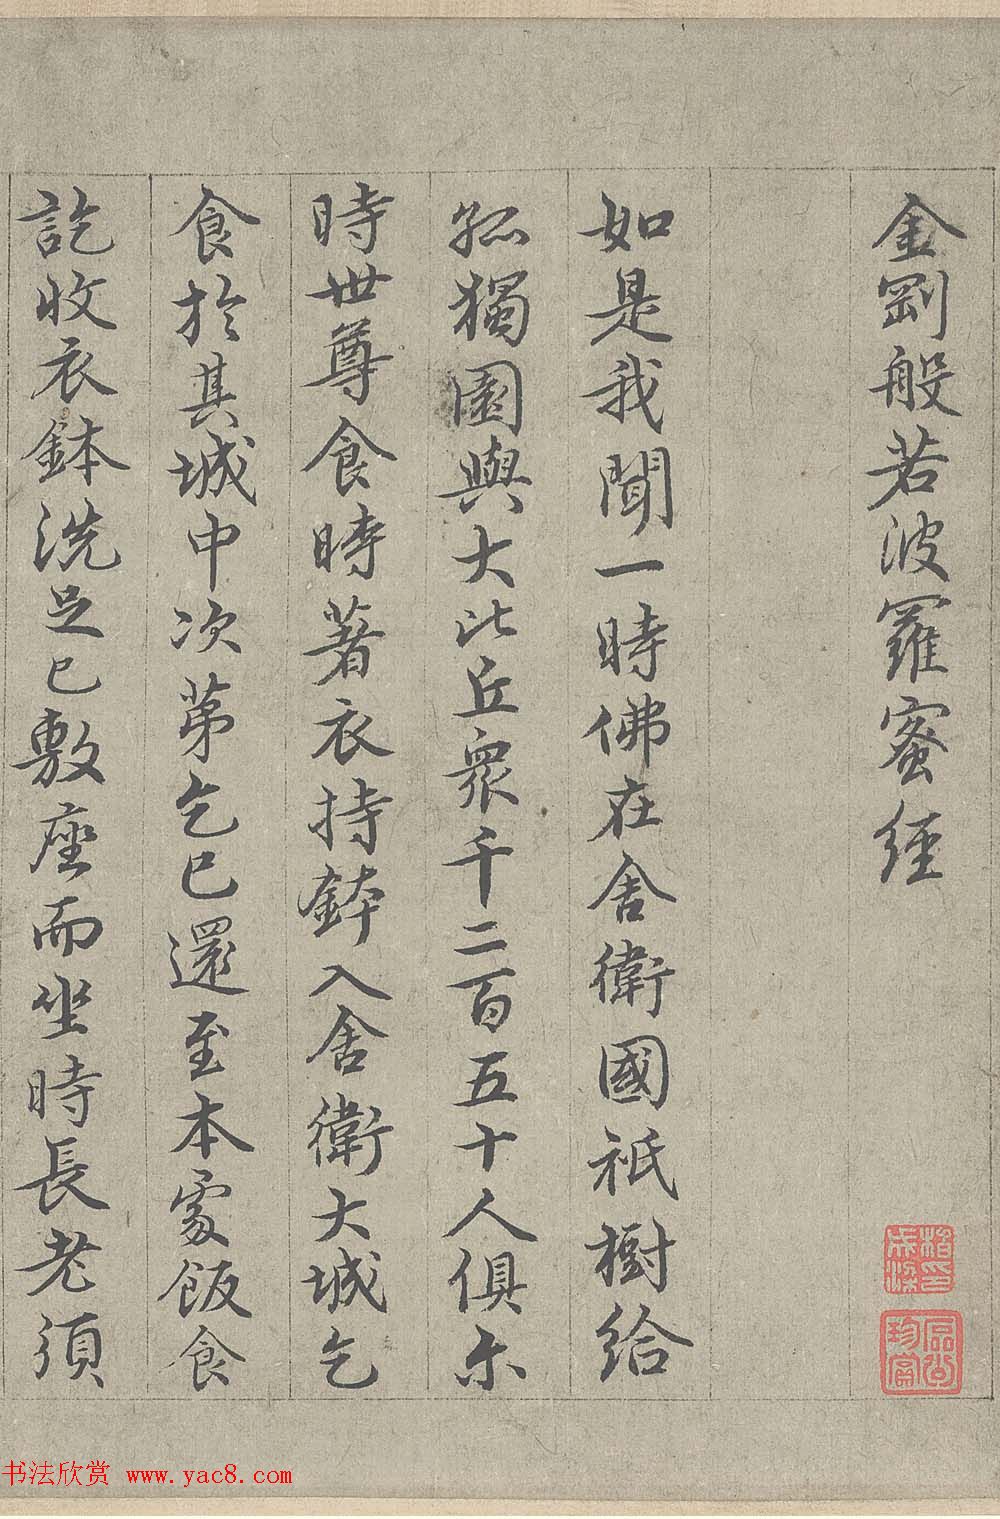 金剛般若波羅蜜經
如是我聞一時佛在舍衛國祇樹給
孤獨園與大比丘眾千二百五十人俱尒
時世尊食時著衣持鉢入舍衛大城乞
食於其城中次第乞已還至本處飯食
訖收衣鉢洗足已敷座而坐時長老須
书法欣赏 www.yac8.com